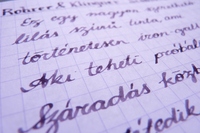 Rohrer & Klingner
Ez egy nagyon
lilás színű tinta, ami
történetesen iron gall
Aki teheti próbál
Száradás közb